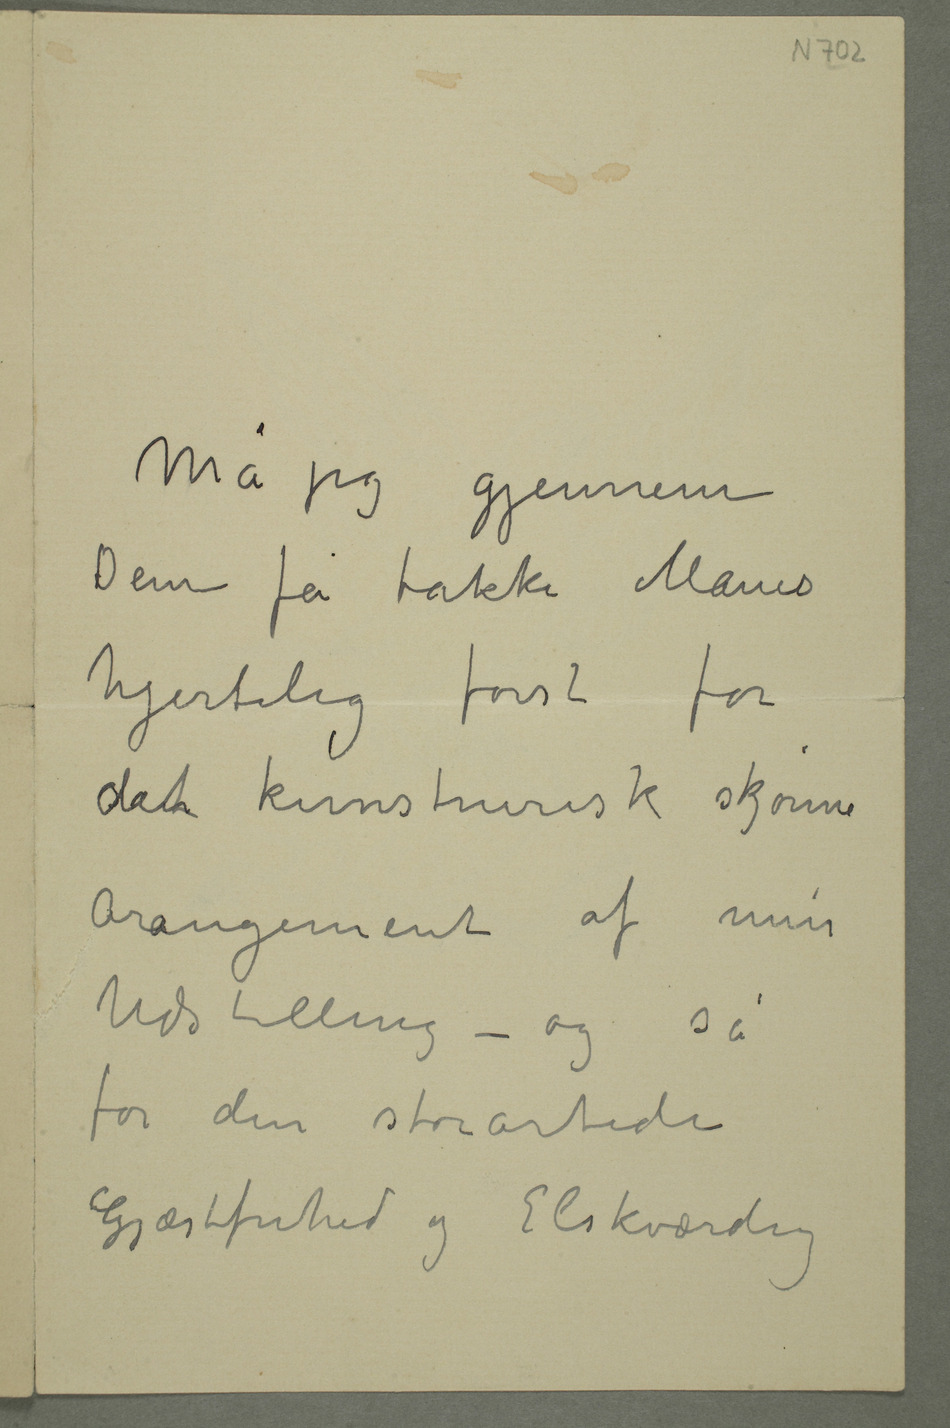 N 702
Må jeg gjennem
Dem få takke Manes
hjertelig først for
det kunstnerisk skjønne
Arangement af min
Udstilling – og så
for den storartede
Gjæstfrihed og Elskværdig